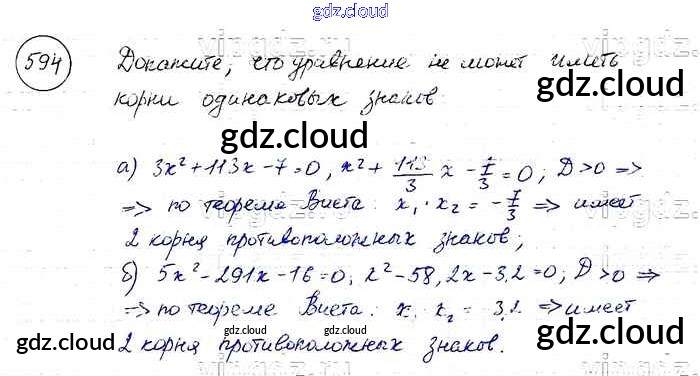 gdz.cloud
594 Докажите, что уравнение не может иметь
gdz.cloud
корни одинаковых знаков
gdz.cloud
а) 3x² + 113x - 7 = 0, x² + 113/3 x - 7/3 = 0; D > 0 =>
=> по теореме Виета: x₁ · x₂ = - 7/3 => имеет
gdz.cloud gdz.cloud
2 корня противоположных знаков;
б) 5x² - 291x - 16 = 0; x² - 58,2x - 3,2 = 0; D > 0 =>
=> по теореме Виета: x₁ x₂ = 3,2 => имеет
gdz.cloud gdz.cloud gdz.cloud
2 корня противоположных знаков.
gdz.cloud